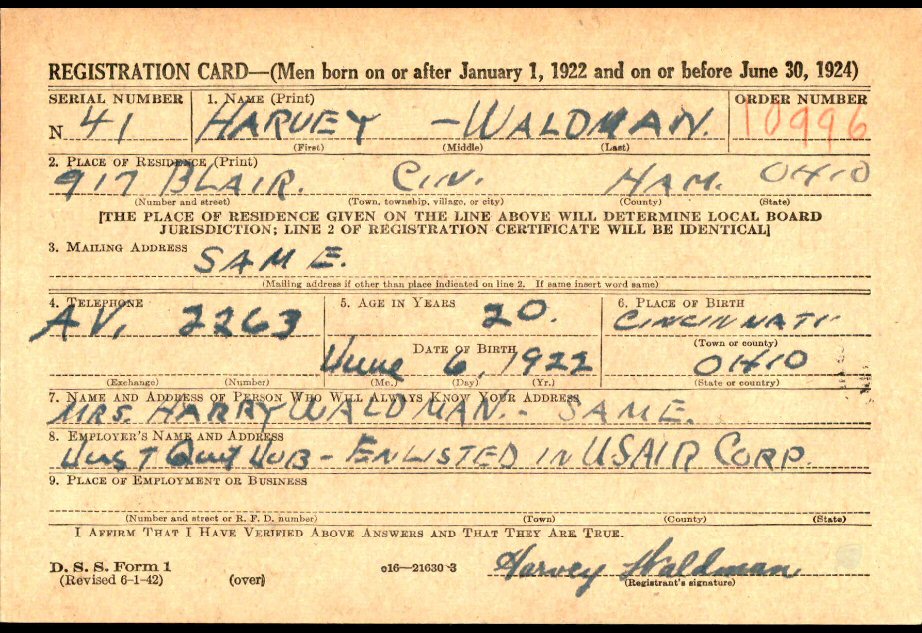 REGISTRATION CARD—(Men born on or after January 1, 1922 and on or before June 30, 1924)
SERIAL NUMBER 1. NAME (Print) ORDER NUMBER
N 41 HARVEY - WALDMAN. 10996
(First) (Middle) (Last)
2. PLACE OF RESIDENCE (Print)
917 BLAIR. CIN. HAM. OHIO
(Number and street) (Town, township, village, or city) (County) (State)
[THE PLACE OF RESIDENCE GIVEN ON THE LINE ABOVE WILL DETERMINE LOCAL BOARD
JURISDICTION; LINE 2 OF REGISTRATION CERTIFICATE WILL BE IDENTICAL]
3. MAILING ADDRESS
SAME.
(Mailing address if other than place indicated on line 2. If same insert word same)
4. TELEPHONE 5. AGE IN YEARS 6. PLACE OF BIRTH
AV. 2263 20. CINCINNATI
(Town or county)
DATE OF BIRTH
June 6, 1922 OHIO
(Exchange) (Number) (Mo.) (Day) (Yr.) (State or country)
7. NAME AND ADDRESS OF PERSON WHO WILL ALWAYS KNOW YOUR ADDRESS
MRS. HARRY WALDMAN. - SAME.
8. EMPLOYER'S NAME AND ADDRESS
JUST QUIT JOB - ENLISTED IN USAIR CORP.
9. PLACE OF EMPLOYMENT OR BUSINESS
(Number and street or R. F. D. number) (Town) (County) (State)
I AFFIRM THAT I HAVE VERIFIED ABOVE ANSWERS AND THAT THEY ARE TRUE.
D. S. S. Form 1
(Revised 6-1-42) (over) c16—21630-3 Harvey Waldman
(Registrant's signature)